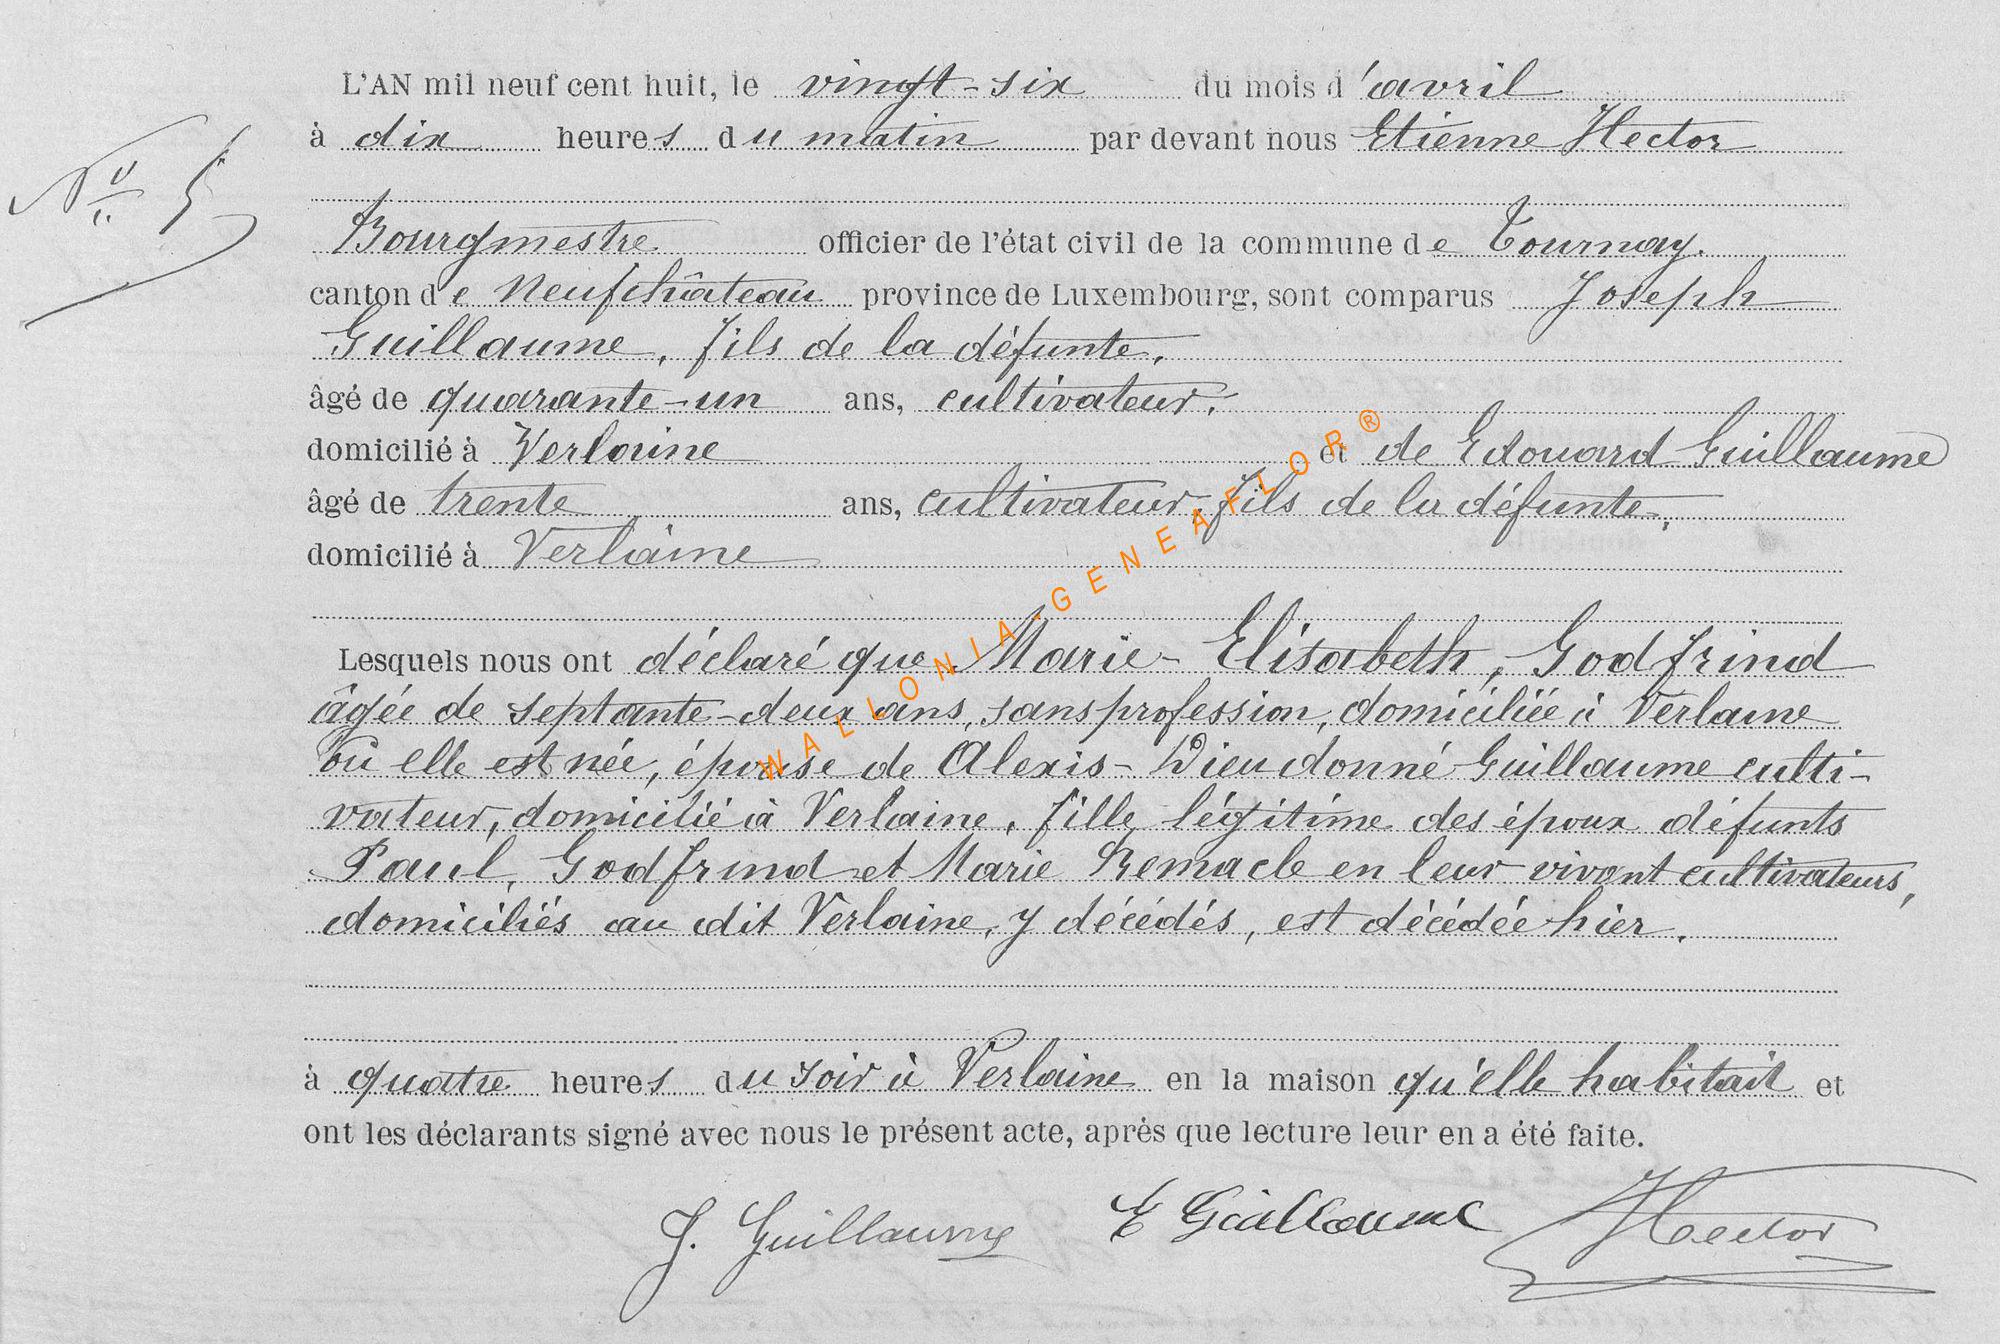 L'AN mil neuf cent huit, le vingt-six du mois d'avril
à dix heures du matin par devant nous Etienne Hector
Nº 5
Bourgmestre officier de l'état civil de la commune de Tournay.
canton de Neufchâteau province de Luxembourg, sont comparus Joseph
Guillaume, fils de la défunte,
âgé de quarante-un ans, cultivateur,
domicilié à Verlaine et de Edouard Guillaume
âgé de trente ans, cultivateur, fils de la défunte,
domicilié à Verlaine
Lesquels nous ont déclaré que Marie-Elisabeth, Godfrind
âgée de septante-deux ans, sans profession, domiciliée à Verlaine
où elle est née, épouse de Alexis-Dieudonné Guillaume culti-
vateur, domicilié à Verlaine, fille légitime des époux défunts
Paul, Godfrind et Marie Remacle en leur vivant cultivateurs,
domiciliés au dit Verlaine, y décédés, est décédée hier.
à quatre heures du soir à Verlaine en la maison qu'elle habitait et
ont les déclarants signé avec nous le présent acte, après que lecture leur en a été faite.
J. Guillaume E Guillaume Hector
WALLONIA-GENEAFLOR®